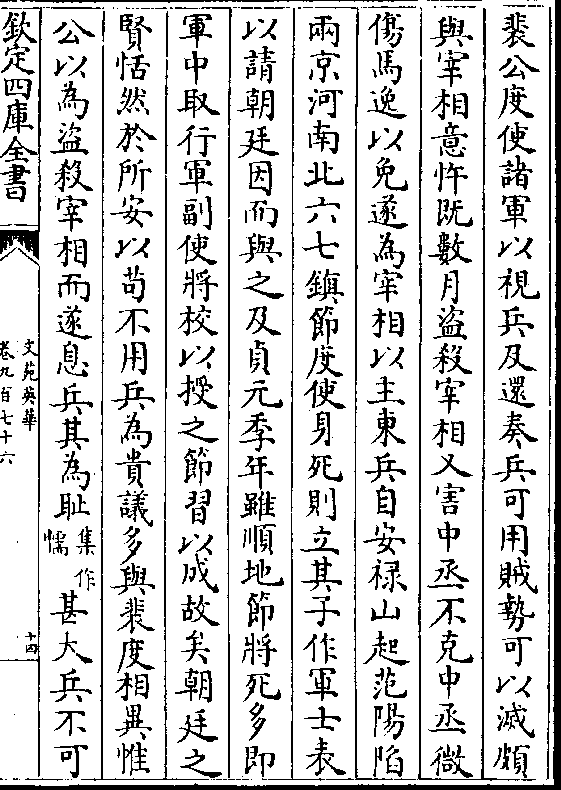 裴公度使諸軍以視兵及還奏兵可用賊勢可以滅頗
與宰相意忤既數月盜殺宰相又害中丞不克中丞微
傷馬逸以免遂為宰相以主東兵自安禄山起范陽陷
兩京河南北六七鎮節度使身死則立其子作軍士表
以請朝廷因而與之及貞元季年雖順地節將死多即
軍中取行軍副使將校以授之節習以成故矣朝廷之
賢恬然於所安以苟不用兵為貴議多與裴度相異惟
公以為盜殺宰相而遂息兵其為耻集作懦甚大兵不可
欽定四庫全書
文苑英華
卷九百七十六
十四